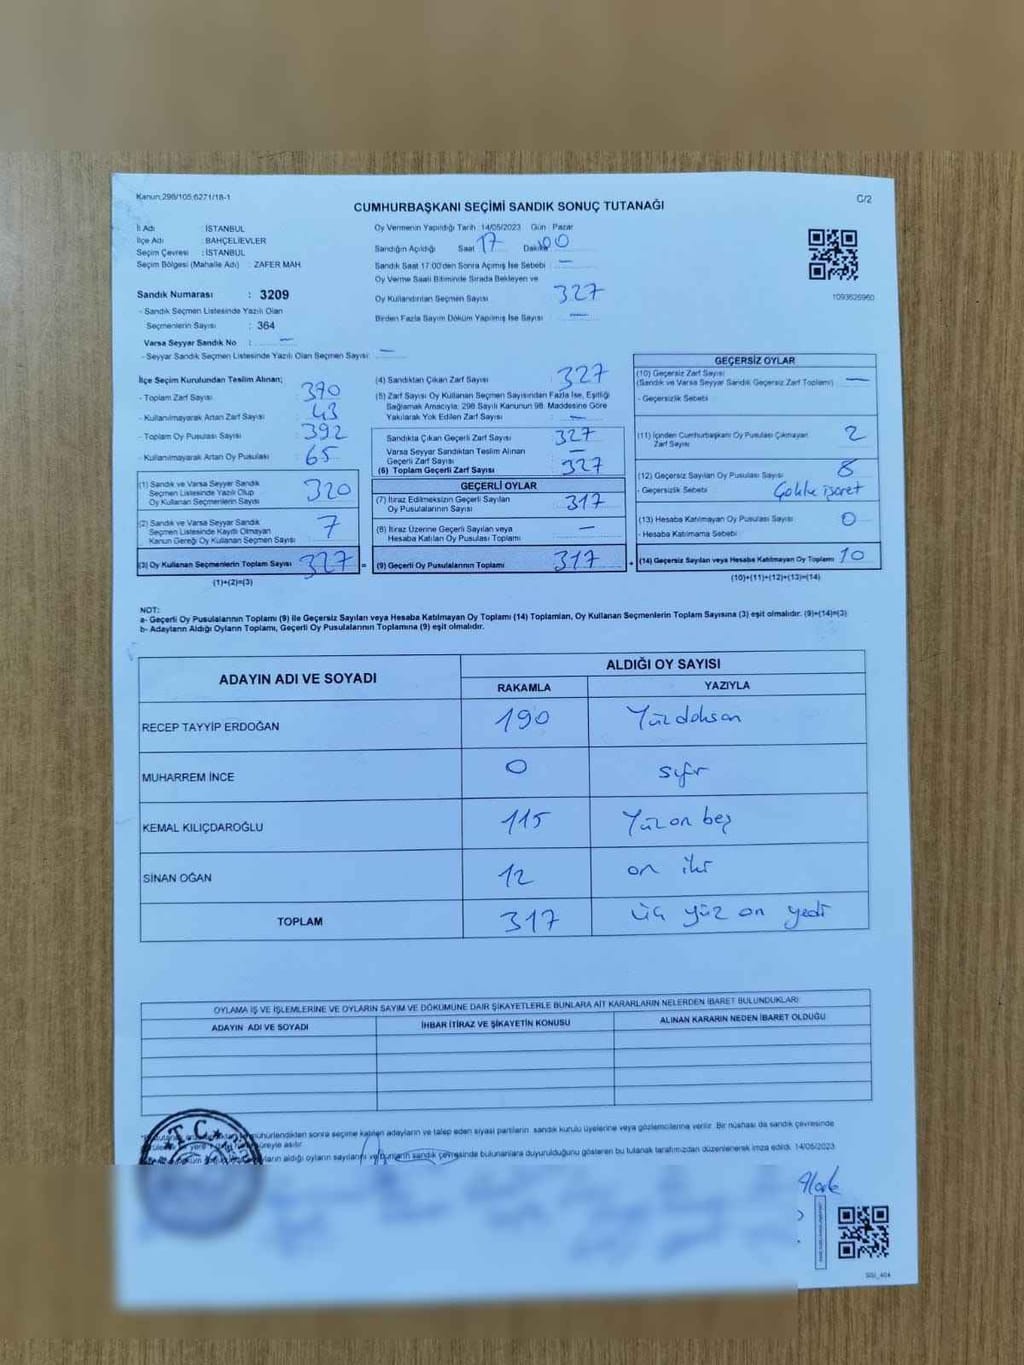 Kanun;298/105;6271/18-1
C/2
CUMHURBAŞKANI SEÇİMİ SANDIK SONUÇ TUTANAĞI
İl Adı : İSTANBUL
İlçe Adı : BAHÇELİEVLER
Seçim Çevresi : İSTANBUL
Seçim Bölgesi (Mahalle Adı) : ZAFER MAH
Sandık Numarası : 3209
- Sandık Seçmen Listesinde Yazılı Olan
Seçmenlerin Sayısı : 364
Varsa Seyyar Sandık No : —
- Seyyar Sandık Seçmen Listesinde Yazılı Olan Seçmen Sayısı: —
Oy Vermenin Yapıldığı Tarih :14/05/2023 Gün : Pazar
Sandığın Açıldığı Saat 17 Dakika 00
Sandık Saat 17:00'den Sonra Açılmış İse Sebebi : —
Oy Verme Saati Bitiminde Sırada Bekleyen ve
Oy Kullandırılan Seçmen Sayısı 327
Birden Fazla Sayım Döküm Yapılmış İse Sayısı : —
1093626960
İlçe Seçim Kurulundan Teslim Alınan;
- Toplam Zarf Sayısı : 370
- Kullanılmayarak Artan Zarf Sayısı : 43
- Toplam Oy Pusulası Sayısı : 392
- Kullanılmayarak Artan Oy Pusulası : 65
(1) Sandık ve Varsa Seyyar Sandık
Seçmen Listesinde Yazılı Olup
Oy Kullanan Seçmenlerin Sayısı 320
(2) Sandık ve Varsa Seyyar Sandık
Seçmen Listesinde Kayıtlı Olmayan
Kanun Gereği Oy Kullanan Seçmen Sayısı : 7
(3) Oy Kullanan Seçmenlerin Toplam Sayısı 327
(1)+(2)=(3)
(4) Sandıktan Çıkan Zarf Sayısı : 327
(5) Zarf Sayısı Oy Kullanan Seçmen Sayısından Fazla İse, Eşitliği
Sağlamak Amacıyla; 298 Sayılı Kanunun 98. Maddesine Göre
Yakılarak Yok Edilen Zarf Sayısı : —
Sandıkta Çıkan Geçerli Zarf Sayısı : 327
Varsa Seyyar Sandıktan Teslim Alınan
Geçerli Zarf Sayısı : —
(6) Toplam Geçerli Zarf Sayısı : 327
GEÇERLİ OYLAR
(7) İtiraz Edilmeksizin Geçerli Sayılan
Oy Pusulalarının Sayısı : 317
(8) İtiraz Üzerine Geçerli Sayılan veya
Hesaba Katılan Oy Pusulası Toplamı : —
= (9) Geçerli Oy Pusulalarının Toplamı : 317
GEÇERSİZ OYLAR
(10) Geçersiz Zarf Sayısı
(Sandık ve Varsa Seyyar Sandık Geçersiz Zarf Toplamı) : —
- Geçersizlik Sebebi :
(11) İçinden Cumhurbaşkanı Oy Pusulası Çıkmayan
Zarf Sayısı : 2
(12) Geçersiz Sayılan Oy Pusulası Sayısı : 8
- Geçersizlik Sebebi : Çoklu işaret
(13) Hesaba Katılmayan Oy Pusulası Sayısı : 0
- Hesaba Katılmama Sebebi :
+ (14) Geçersiz Sayılan veya Hesaba Katılmayan Oy Toplamı : 10
(10)+(11)+(12)+(13)=(14)
NOT:
a- Geçerli Oy Pusulalarının Toplamı (9) ile Geçersiz Sayılan veya Hesaba Katılmayan Oy Toplamı (14) Toplamları, Oy Kullanan Seçmenlerin Toplam Sayısına (3) eşit olmalıdır. (9)+(14)=(3)
b- Adayların Aldığı Oyların Toplamı, Geçerli Oy Pusulalarının Toplamına (9) eşit olmalıdır.
ADAYIN ADI VE SOYADI ALDIĞI OY SAYISI
RAKAMLA YAZIYLA
RECEP TAYYİP ERDOĞAN 190 Yüzdoksan
MUHARREM İNCE 0 sıfır
KEMAL KILIÇDAROĞLU 115 Yüzon beş
SİNAN OĞAN 12 on iki
TOPLAM 317 üç yüz on yedi
OYLAMA İŞ VE İŞLEMLERİNE VE OYLARIN SAYIM VE DÖKÜMÜNE DAİR ŞİKAYETLERLE BUNLARA AİT KARARLARIN NELERDEN İBARET BULUNDUKLARI
ADAYIN ADI VE SOYADI İHBAR İTİRAZ VE ŞİKAYETİN KONUSU ALINAN KARARIN NEDEN İBARET OLDUĞU
mühürlendikten sonra seçime katılan adayların ve talep eden siyasi partilerin sandık kurulu üyelerine veya gözlemcilerine verilir. Bir nüshası da sandık çevresinde
süreyle asılır.
aldığı oyların sayılarını ve bunların sandık çevresinde bulunanlara duyurulduğunu gösteren bu tutanak tarafımızdan düzenlenerek imza edildi. 14/05/2023
T.C.